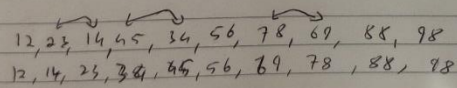 12, 23, 14, 45, 34, 56, 78, 69, 88, 98
12, 14, 23, 34, 45, 56, 69, 78, 88, 98